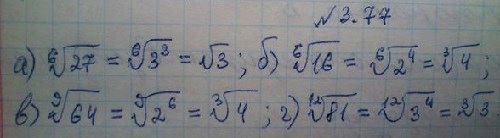 №3.77
а) ⁶√27 = ⁶√3³ = √3; б) ⁶√16 = ⁶√2⁴ = ³√4;
в) ⁹√64 = ⁹√2⁶ = ³√4; г) ¹²√81 = ¹²√3⁴ = ³√3